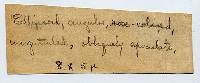 Ellipsoid, angular, rose-colored,
, obliquely apiculate,
8 x 5 µ